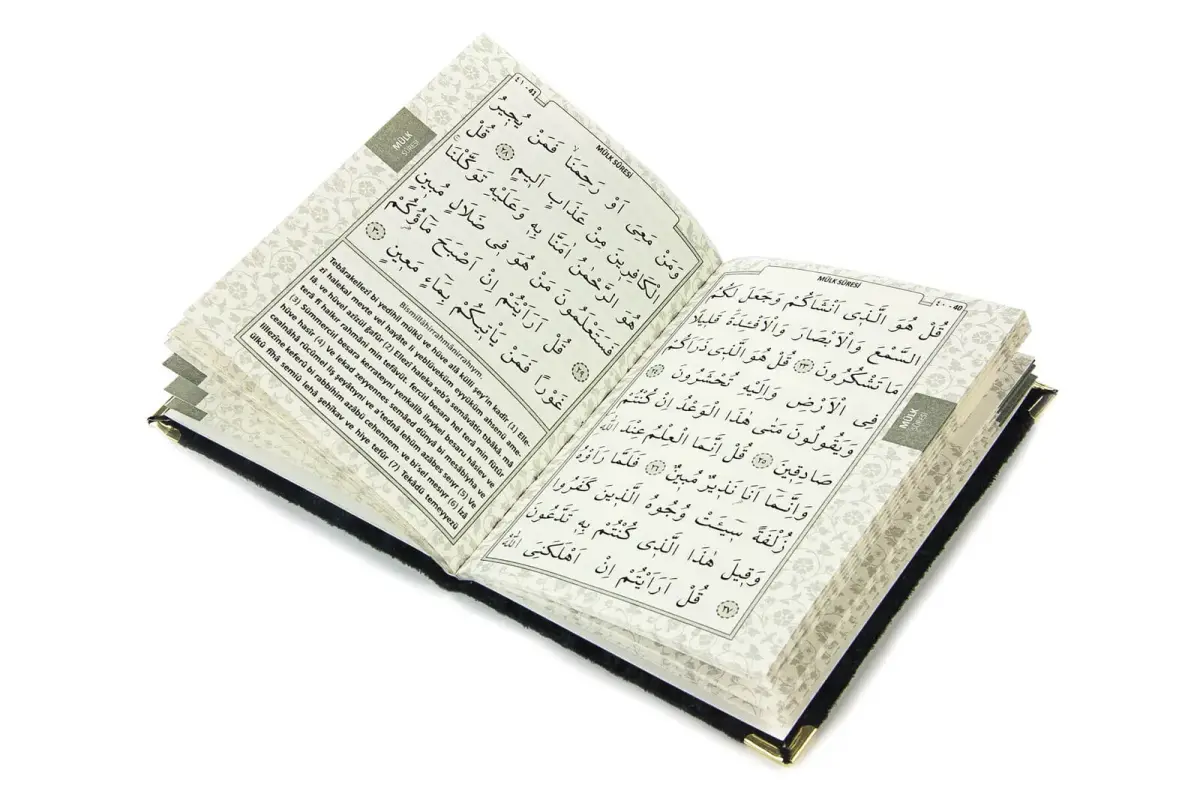 MÜLK SÛRESİ
٤٠ - 40
قُلْ هُوَ الَّذٖٓى اَنْشَاَكُمْ وَجَعَلَ لَكُمُ
السَّمْعَ وَالْاَبْصَارَ وَالْاَفْـِٔدَةَ قَلٖيلًا
مَا تَشْكُرُونَ ﴿٢٣﴾ قُلْ هُوَ الَّذٖى ذَرَاَكُمْ
فِى الْاَرْضِ وَاِلَيْهِ تُحْشَرُونَ ﴿٢٤﴾
وَيَقُولُونَ مَتٰى هٰذَا الْوَعْدُ اِنْ كُنْتُمْ
صَادِقٖينَ ﴿٢٥﴾ قُلْ اِنَّمَا الْعِلْمُ عِنْدَ اللّٰهِ
وَاِنَّمَٓا اَنَا نَذٖيرٌ مُبٖينٌ ﴿٢٦﴾ فَلَمَّا رَاَوْهُ
زُلْفَةً سٖٓيـَٔتْ وُجُوهُ الَّذٖينَ كَفَرُوا
وَقٖيلَ هٰذَا الَّذٖى كُنْتُمْ بِهٖ تَدَّعُونَ
﴿٢٧﴾ قُلْ اَرَاَيْتُمْ اِنْ اَهْلَكَنِىَ اللّٰهُ
MÜLK
SÛRESİ
٤١ - 41
MÜLK SÛRESİ
وَمَنْ مَعِىَ اَوْ رَحِمَنَا فَمَنْ يُجٖيرُ
الْكَافِرٖينَ مِنْ عَذَابٍ اَلٖيمٍ ﴿٢٨﴾ قُلْ
هُوَ الرَّحْمٰنُ اٰمَنَّا بِهٖ وَعَلَيْهِ تَوَكَّلْنَا
فَسَتَعْلَمُونَ مَنْ هُوَ فٖى ضَلَالٍ مُبٖينٍ
﴿٢٩﴾ قُلْ اَرَاَيْتُمْ اِنْ اَصْبَحَ مَٓاؤُ۬كُمْ
غَوْرًا فَمَنْ يَاْتٖيكُمْ بِمَٓاءٍ مَعٖينٍ ﴿٣٠﴾
Bismillâhirrahmânirrahıym.
Tebârakellezî bi yedihil mülkü ve hüve alâ külli şey'in kadîr. (1) Elle-
zî halekal mevte vel hayâte li yeblüveküm eyyüküm ahsenü ame-
lâ. ve hüvel azîzül ğafûr (2) Ellezî haleka seb'a semâvâtin tıbâkâ. mâ
terâ fî halkır rahmâni min tefâvüt. ferciıl besara hel terâ min fütûr
(3) Sümmerciıl besara kerrateyni yenkalib ileykel besaru hâsiev ve
hüve hasîr (4) Ve lekad zeyyennes semâed dünyâ bi mesâbîyha ve
cealnâhâ rücûmel liş şeyâtyni ve a'tednâ lehüm azâbes seıyr (5) Ve
lillezîne keferû bi rabbihim azâbü cehennem. ve bi'sel mesıyr (6) İzâ
ülkû fîhâ semiû lehâ şehîkav ve hiye tefûr (7) Tekâdü temeyyezü
MÜLK
SÛRESİ